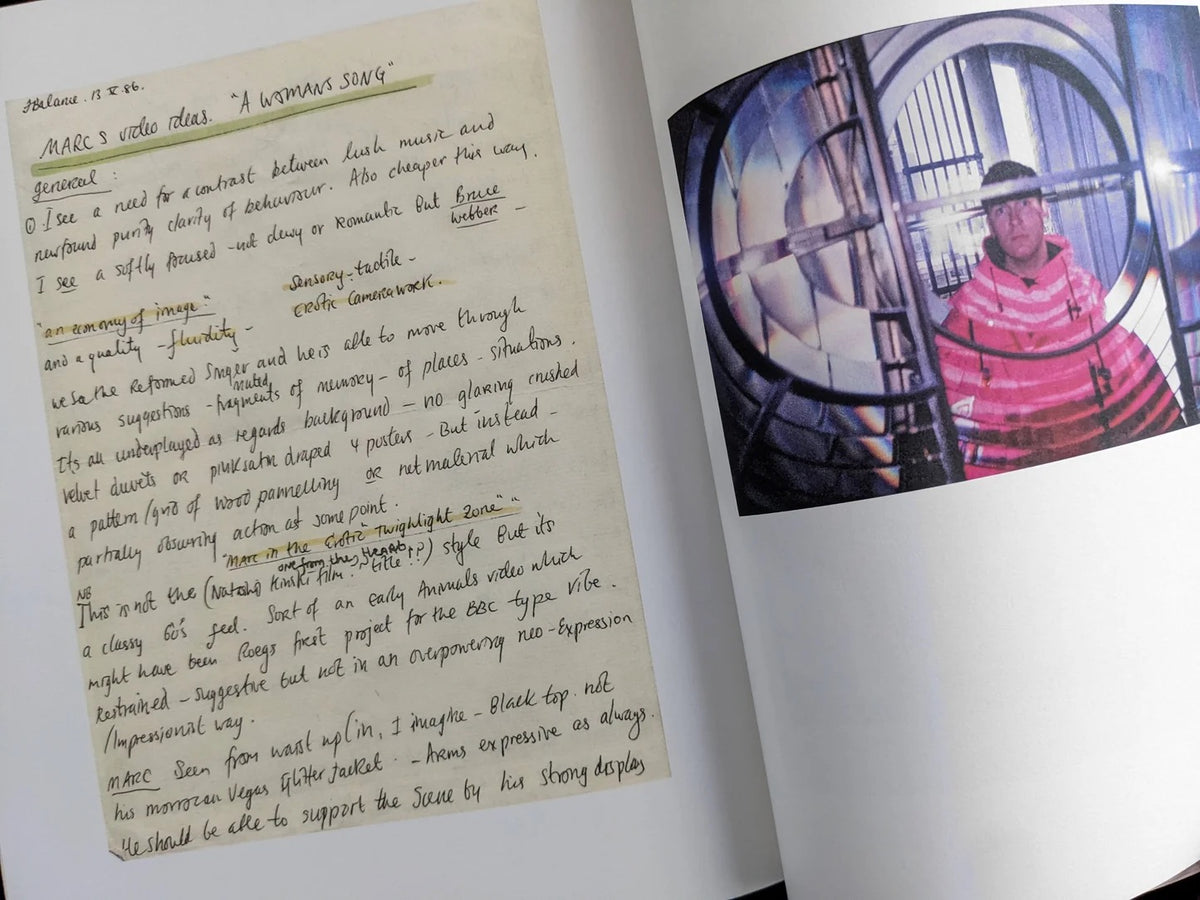 JBalance. 13 V 86.
MARC S video ideas. "A WOMANS SONG"
general :
① I see a need for a contrast between lush music and
newfound purity clarity of behaviour. Also cheaper this way.
I see a softly focused - not dewy or romantic But Bruce
webber -
"an economy of image" Sensory - tactile -
and a quality - fluidity - erotic camerawork.
we see the Reformed Singer and he is able to move through
various suggestions - muted fragments of memory - of places - situations.
Its all underplayed as regards background - no glaring crushed
velvet duvets OR pink satin draped 4 posters - But instead -
a pattern/grid of wood pannelling OR net material which
partially obscuring action at some point.
"MARC in the Erotic Twighlight Zone"
one from the HEART
NB
This is not the (Natashi Kinski film. ~ title !?) style But its
a classy 60's feel. Sort of an early Animals video which
might have been Roegs first project for the BBC type vibe.
Restrained - suggestive but not in an overpowering neo-Expression
/Impressionist way.
MARC Seen from waist up (in, I imagine - Black top. not
his morrocan Vegas Glitter Jacket. - Arms expressive as always.
He should be able to support the scene by his strong display